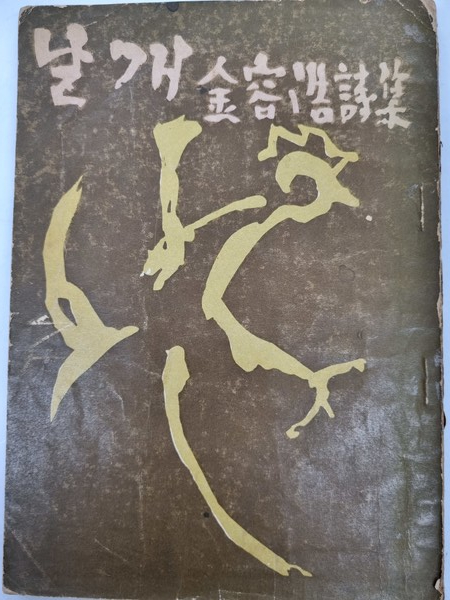 날개 金容浩詩集